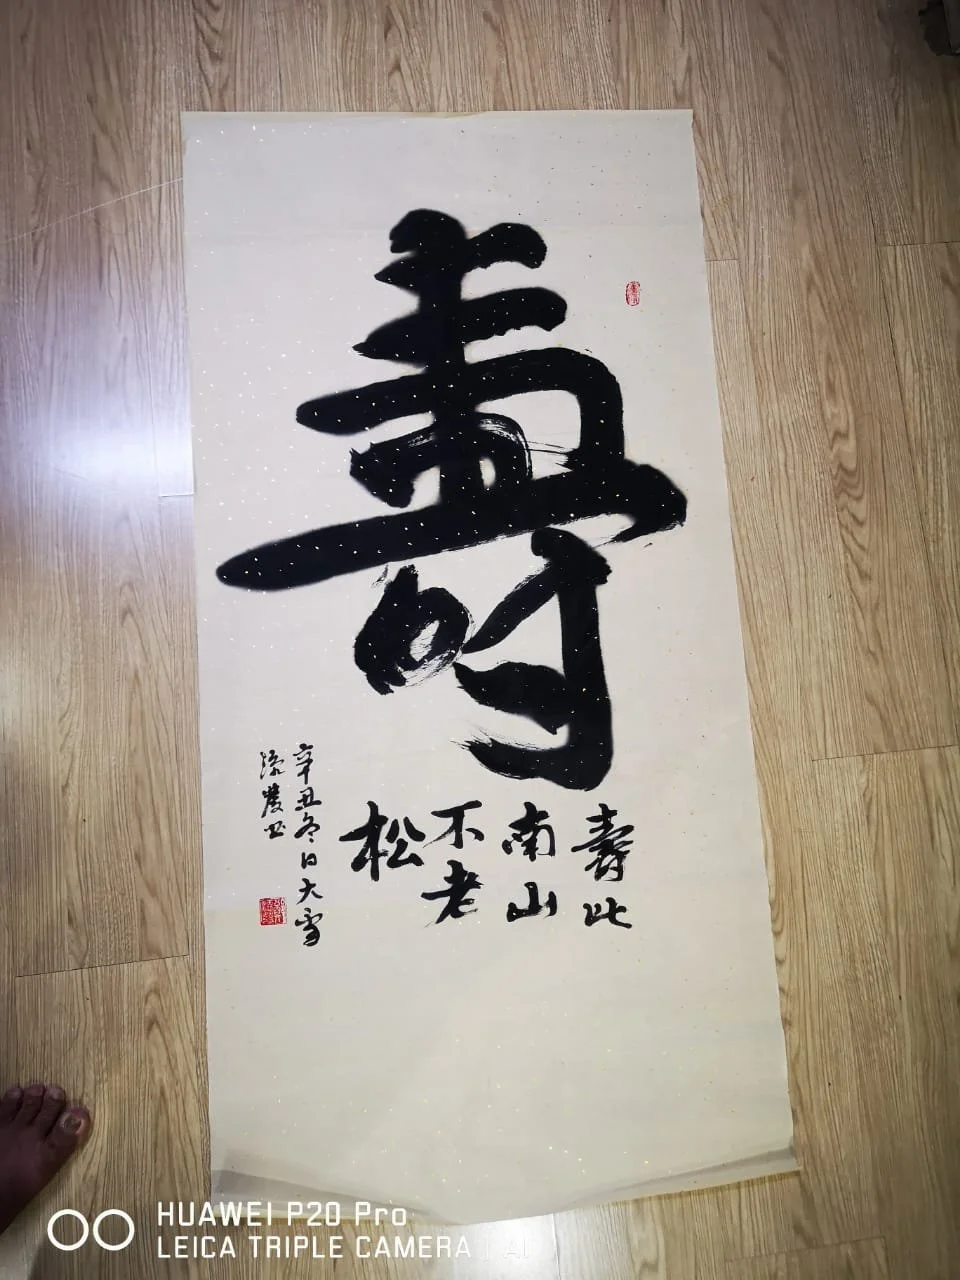 壽
壽比
南山
不老
松
辛丑冬日大雪
HUAWEI P20 Pro
LEICA TRIPLE CAMERA | AI